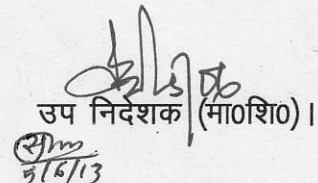 उप निदेशक (मा0शि0) ।
5/6/13